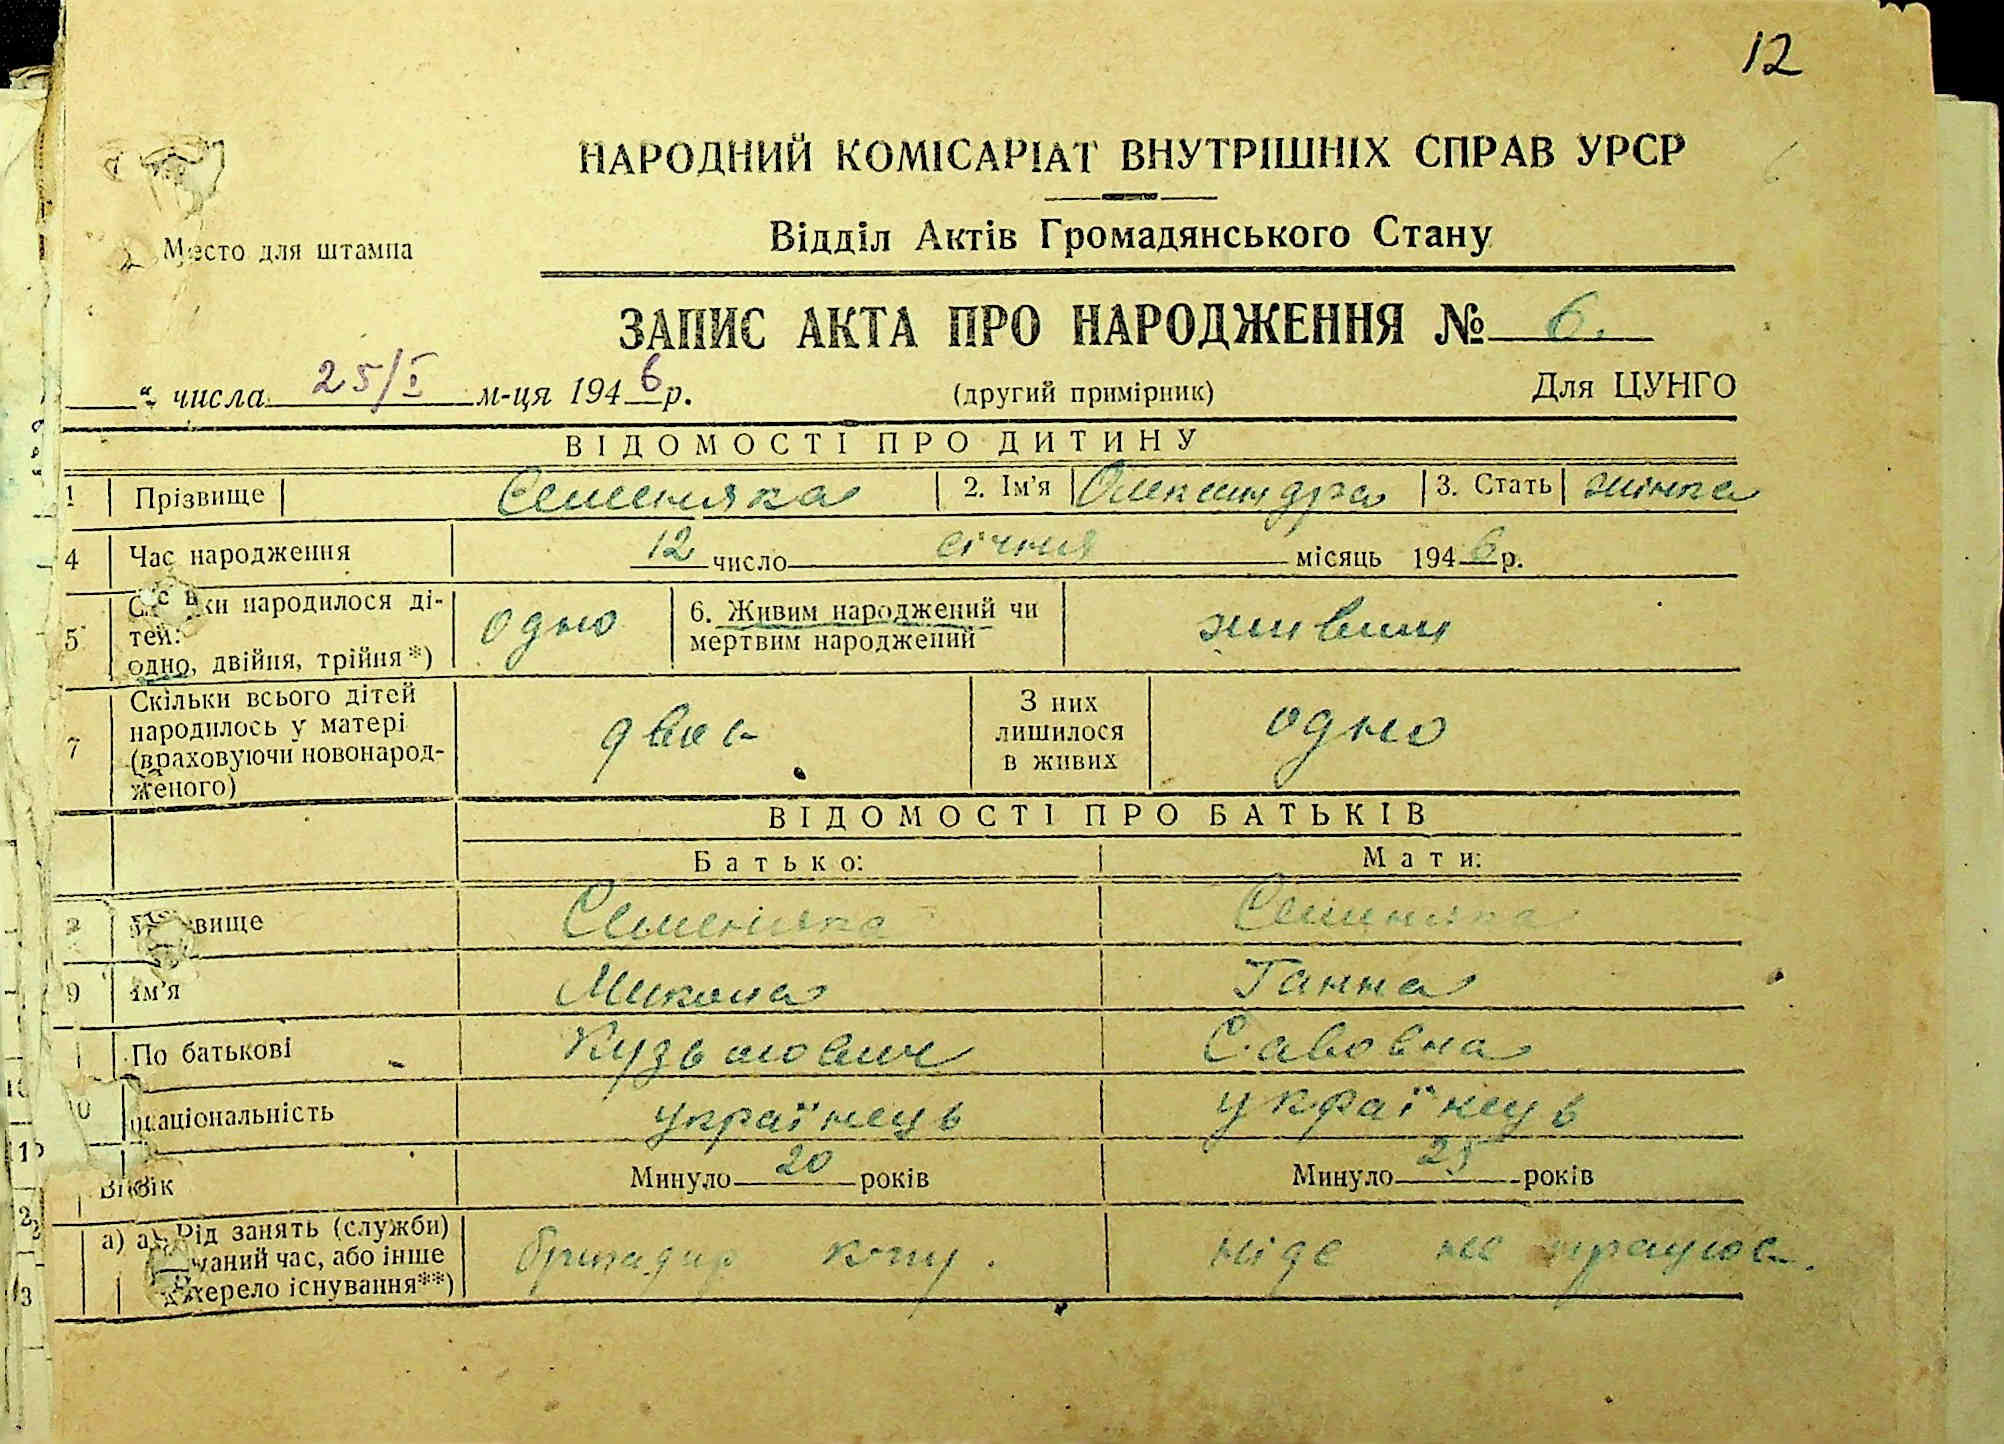 12
НАРОДНИЙ КОМІСАРІАТ ВНУТРІШНІХ СПРАВ УРСР
Відділ Актів Громадянського Стану
Место для штампа
ЗАПИС АКТА ПРО НАРОДЖЕННЯ № 6.
“ числа 25/I м-ця 1946 р. (другий примірник) Для ЦУНГО
ВІДОМОСТІ ПРО ДИТИНУ
1 Прізвище Семеняка 2. Ім'я Олександра 3. Стать жінка
4 Час народження 12 число січня місяць 1946 р.
5 народилося ді-
тей:
одно, двійня, трійня*) одно 6. Живим народжений чи
мертвим народжений живим
7 Скільки всього дітей
народилось у матері
(враховуючи новонарод-
женого) двоє З них
лишилося
в живих одно
ВІДОМОСТІ ПРО БАТЬКІВ
Батько: Мати:
Семеняка Семеняка
9 ім'я Микола Ганна
По батькові Кузьмович Савовна
національність українець українець
Вік Минуло 20 років Минуло 25 років
а) Рід занять (службы)
даний час, або інше
джерело існування**) бригадир ніде не працює.